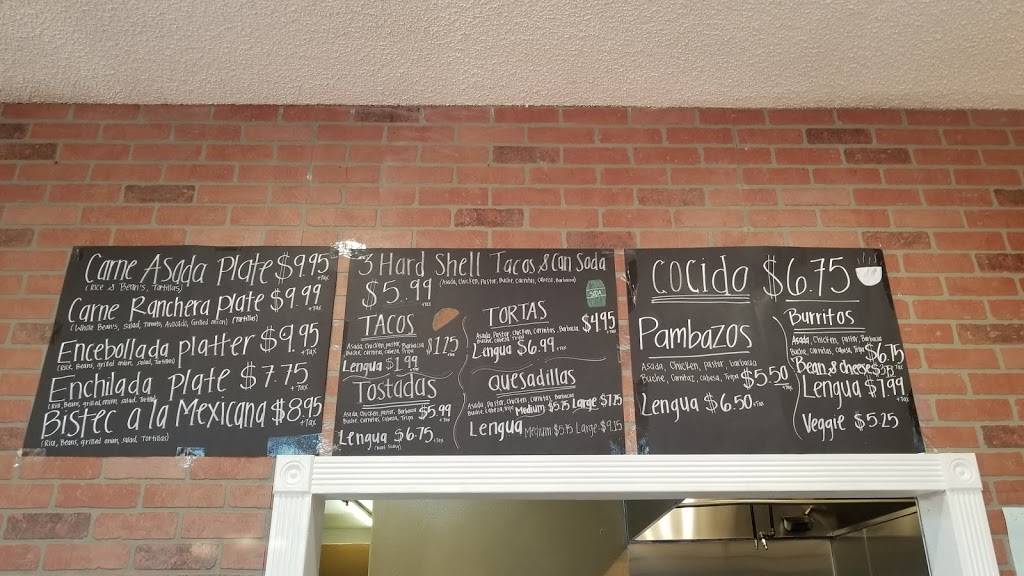 Carne Asada Plate $9.95
(Rice & Bean's, Tortillas)
Carne Ranchera Plate $9.99
(Whole Beans, Salad, Tomato, Avocado, Grilled onion) (Tortillas)
Encebollada Platter $9.95
+Tax
(Rice, Beans, grilled onion, salad, Tortillas)
Enchilada Plate $7.75
+Tax
(Rice, Beans, grilled onion, salad, Tortillas)
Bistec a la Mexicana $8.95
+Tax
(Rice, Beans, grilled onion, salad, Tortillas)
3 Hard Shell Tacos & Can Soda
$5.99
(Asada, Chicken, Pastor, Buche, Carnitas, Cabesa, Barbacoa)
SODA
TACOS
Asada, Chicken, Pastor, Barbacoa
Buche, carnitas, cabesa, Tripa
$1.25
Lengua $1.99
Tostadas
Asada, Chicken, Pastor, Barbacoa
Buche, Carnitas, Cabesa, Tripa
$5.99
Lengua $6.75
TORTAS
Asada, Pastor, chicken, Carnitas, Barbacoa
Buche, cabesa, Tripa
$4.95
Lengua $6.99
Quesadillas
Asada, Pastor, chicken, Carnitas, Barbacoa
Buche, Cabesa, Tripa
Medium $5.75 Large $7.25
Lengua Medium $5.75 Large $9.25
Cocido $6.75
Pambazos
Asada, Chicken, pastor, barbacoa
Buche, Carnitaz, cabesa, Tripa $5.50
Lengua $6.50
Burritos
Asada, Chicken, pastor, Barbacoa
Buche, Carnitas, cabesa, Tripa $6.75
Bean & cheese
Lengua $7.99
Veggie $5.25